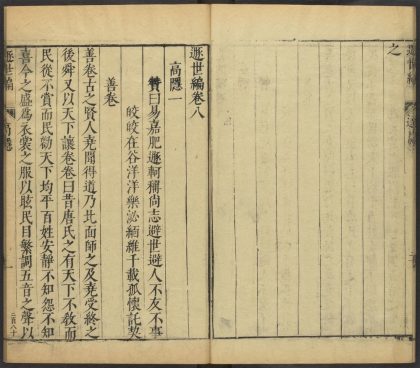 之
遯世編卷八
高隱一
贊曰易嘉肥遯軻稱尚志避世避人不友不事
皎皎在谷洋洋樂泌緬維千載孤懷託契
善卷
善卷古之賢人堯聞得道乃北面師之及堯受終之
後舜又以天下讓卷卷曰昔唐氏之有天下不敎而
民從不賞而民勸天下均平百姓安靜不知怨不知
喜今之盛爲衣裳之服以眩民目繁調五音之聲以
遯世編